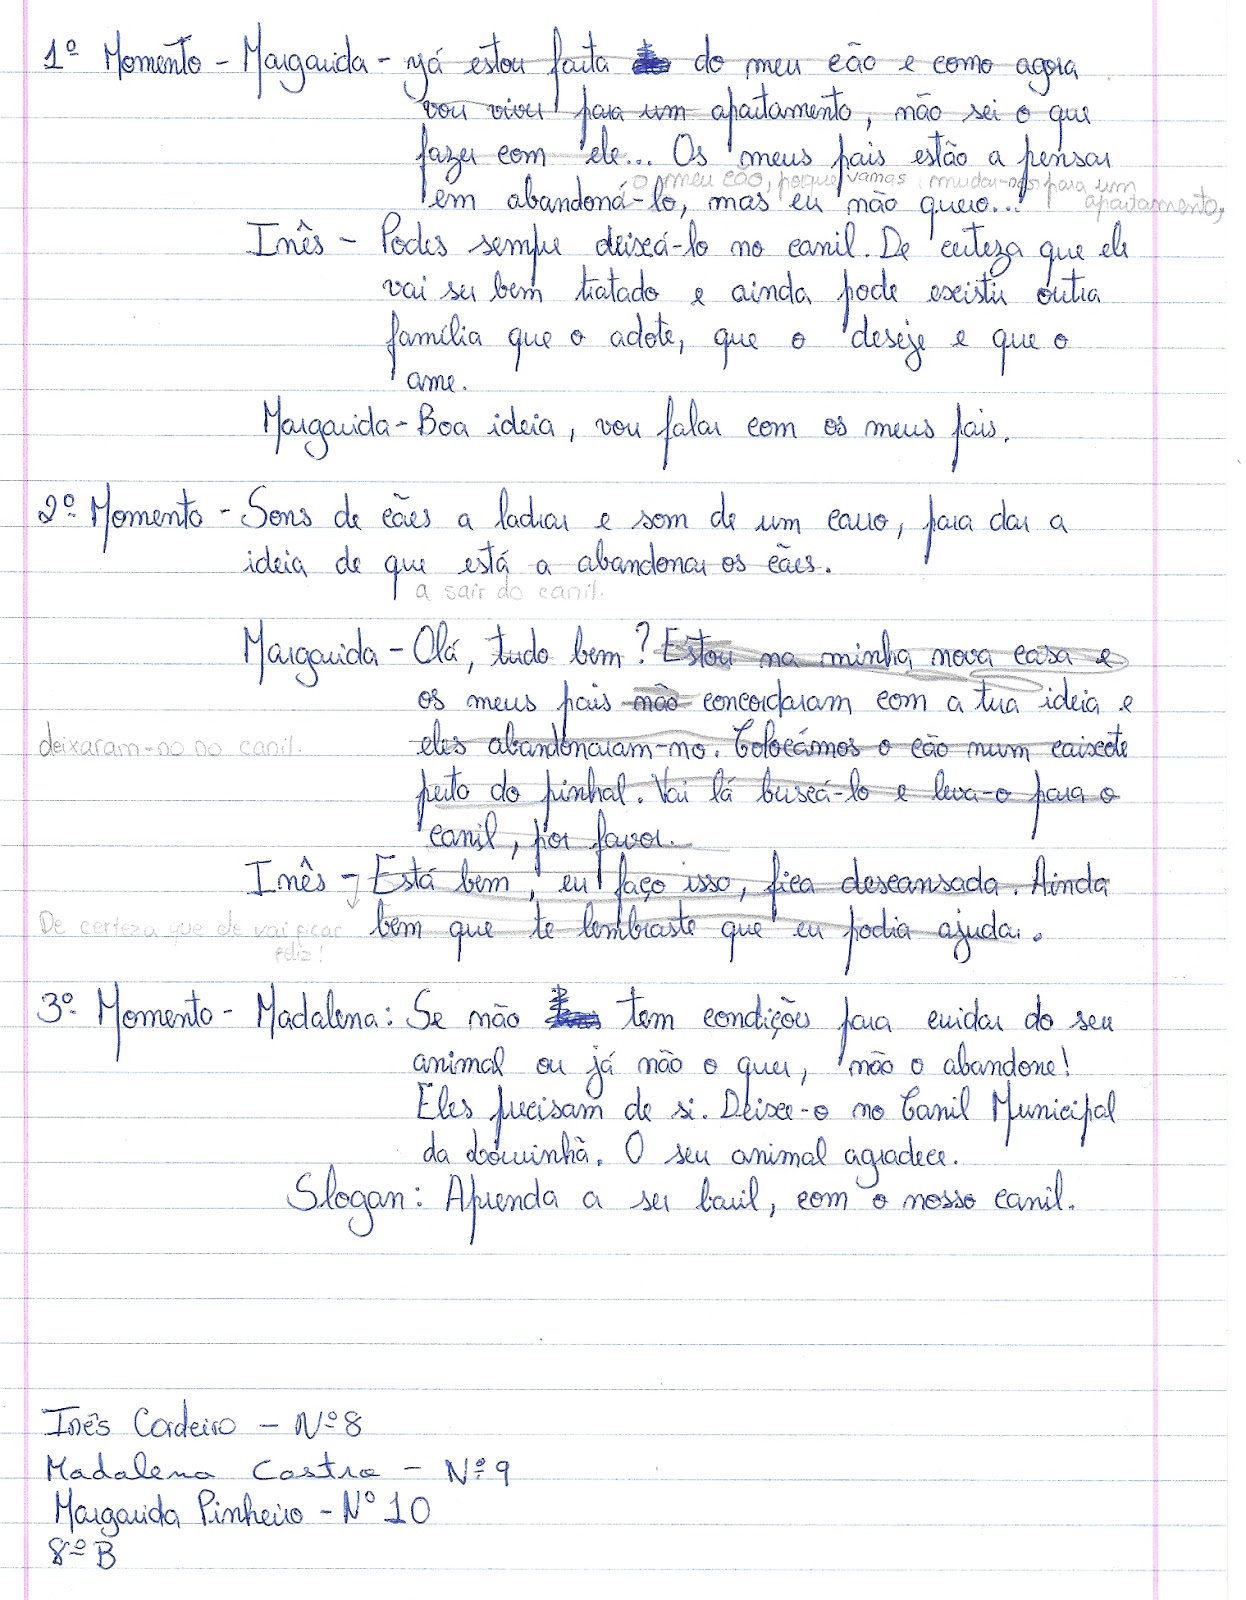 1º Momento - Margarida - Já estou farta do meu cão e como agora
vou viver para um apartamento, não sei o que
fazer com ele... Os meus pais estão a pensar
o meu cão, porque vamos mudar-nos para um
em abandoná-lo, mas eu não quero...
apartamento,
Inês - Podes sempre deixá-lo no canil. De certeza que ele
vai ser bem tratado e ainda pode existir outra
família que o adote, que o deseje e que o
ame.
Margarida - Boa ideia, vou falar com os meus pais.
2º Momento - Sons de cães a ladrar e som de um carro, para dar a
ideia de que está a abandonar os cães.
a sair do canil.
Margarida - Olá, tudo bem? Estou na minha nova casa e
os meus pais não concordaram com a tua ideia e
deixaram-no no canil.
eles abandonaram-no. Colocámos o cão num caixote
perto do pinhal. Vai lá buscá-lo e leva-o para o
canil, por favor.
Inês - Está bem, eu faço isso, fica descansada. Ainda
De certeza que ele vai ficar
bem que te lembraste que eu podia ajudar.
feliz!
3º Momento - Madalena: Se não tem condições para cuidar do seu
animal ou já não o quer, não o abandone!
Eles precisam de si. Deixe-o no Canil Municipal
da Lourinhã. O seu animal agradece.
Slogan: Aprenda a ser baril, com o nosso canil.
Inês Cordeiro - Nº8
Madalena Castro - Nº9
Margarida Pinheiro - Nº 10
8º B